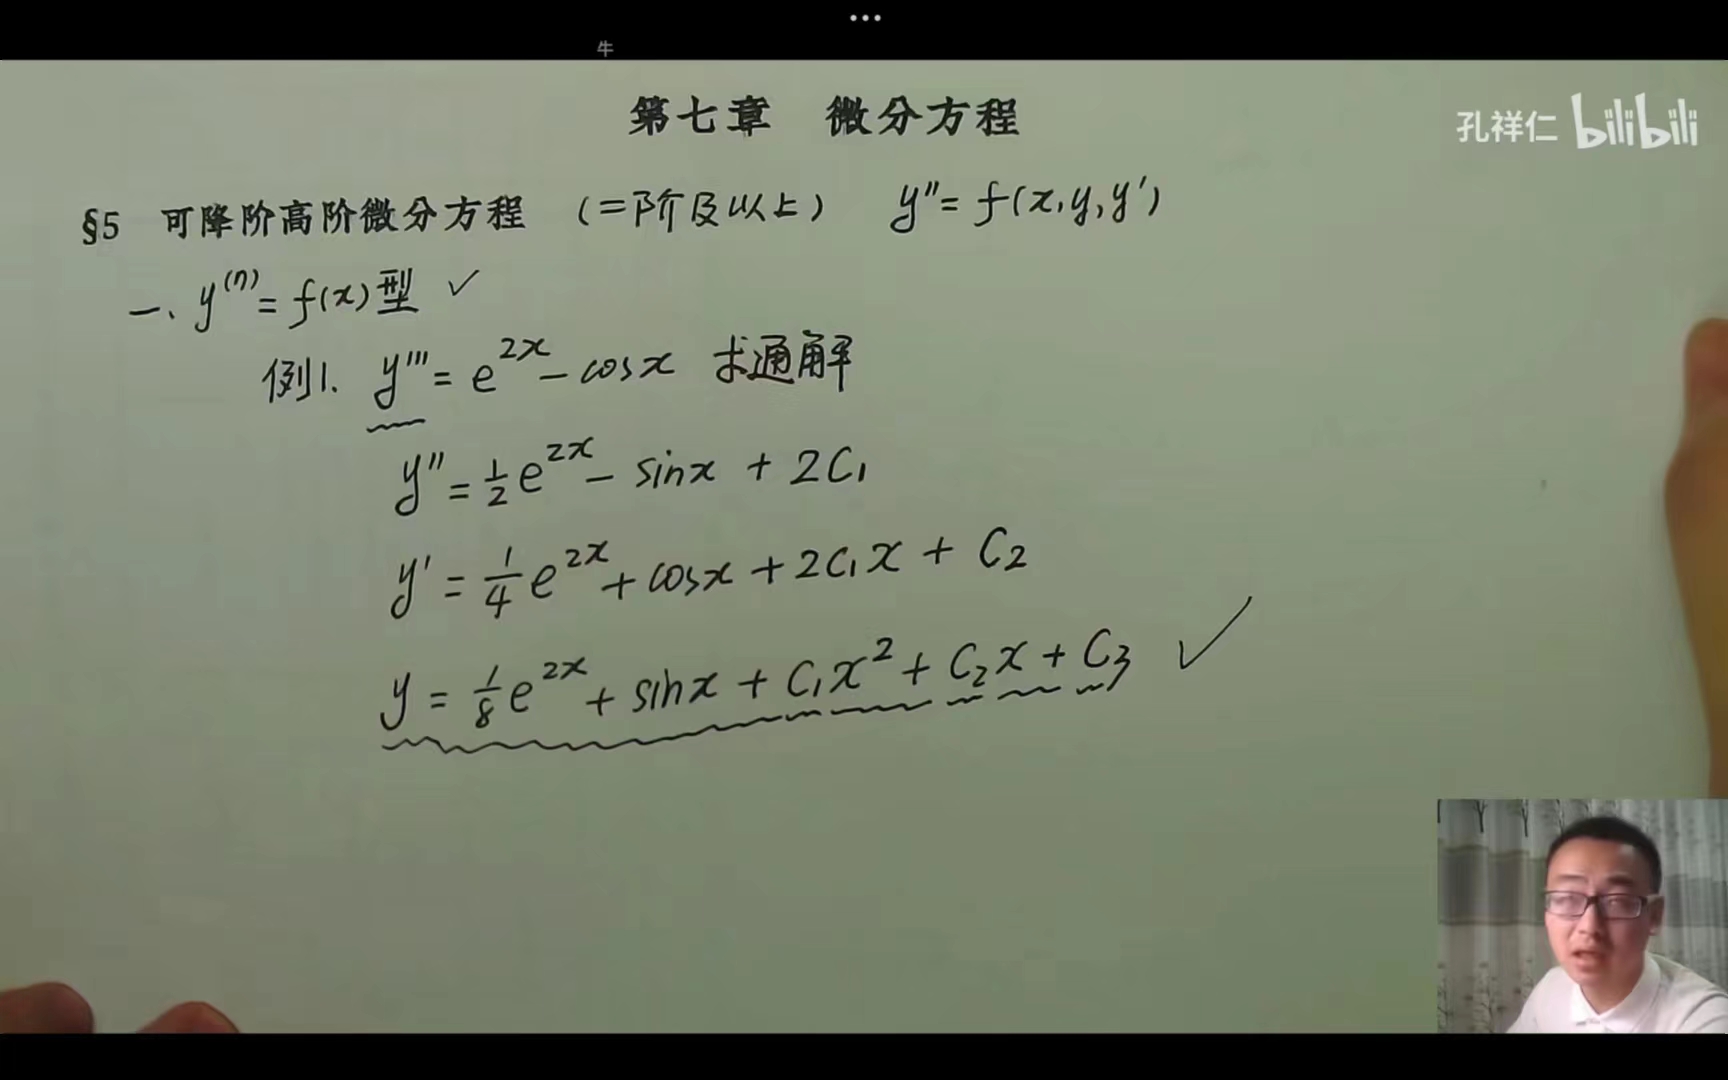 •••
牛
第七章 微分方程
孔祥仁 bilibili
§5 可降阶高阶微分方程 (二阶及以上) y''= f(x,y,y')
一. y⁽ⁿ⁾= f(x)型 ✓
例1. y'''= e^{2x} - cosx 求通解
y''= \frac{1}{2}e^{2x} - sinx + 2C₁
y' = \frac{1}{4}e^{2x} + cosx + 2C₁x + C₂
y = \frac{1}{8}e^{2x} + sinx + C₁x² + C₂x + C₃ ✓